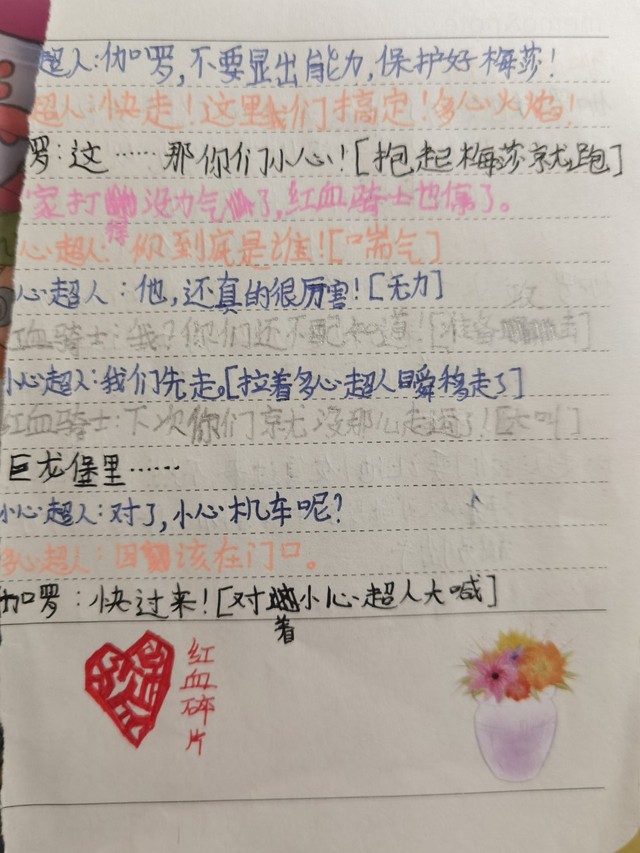 超人:伽罗,不要显出能力,保护好梅莎!
超人:快走!这里我们搞定!多心火焰!
罗:这……那你们小心![抱起梅莎就跑]
家打得没力气了,红血骑士也停了。
心超人:你到底是谁![喘气]
心超人:他,还真的很厉害![无力]
红血骑士:我?你们还不配知道![准备 击]
小心超人:我们先走。[拉着多心超人瞬移走了]
红血骑士:下次你们就没那么走运了![大叫]
巨龙堡里……
小心超人:对了,小心机车呢?
多心超人:因该在门口。
伽罗:快过来![对着小心超人大喊]
红血碎片